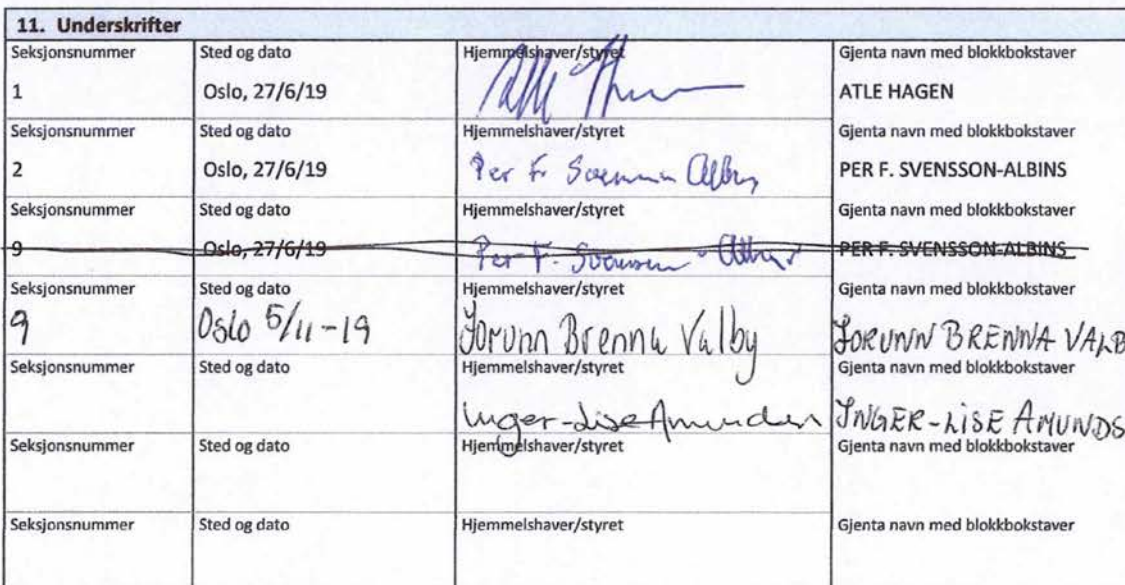 11. Underskrifter
Seksjonsnummer Sted og dato Hjemmelshaver/styret Gjenta navn med blokkbokstaver
1 Oslo, 27/6/19 ATLE HAGEN
Seksjonsnummer Sted og dato Hjemmelshaver/styret Gjenta navn med blokkbokstaver
2 Oslo, 27/6/19 Per F. Svensson Albins PER F. SVENSSON-ALBINS
Seksjonsnummer Sted og dato Hjemmelshaver/styret Gjenta navn med blokkbokstaver
9 Oslo, 27/6/19 Per F. Svensson-Albins PER F. SVENSSON-ALBINS
Seksjonsnummer Sted og dato Hjemmelshaver/styret Gjenta navn med blokkbokstaver
9 Oslo 5/11-19 Jorunn Brenna Valby JORUNN BRENNA VALB
Seksjonsnummer Sted og dato Hjemmelshaver/styret Gjenta navn med blokkbokstaver
Inger-Lise Amundsen INGER-LISE AMUNDS
Seksjonsnummer Sted og dato Hjemmelshaver/styret Gjenta navn med blokkbokstaver
Seksjonsnummer Sted og dato Hjemmelshaver/styret Gjenta navn med blokkbokstaver